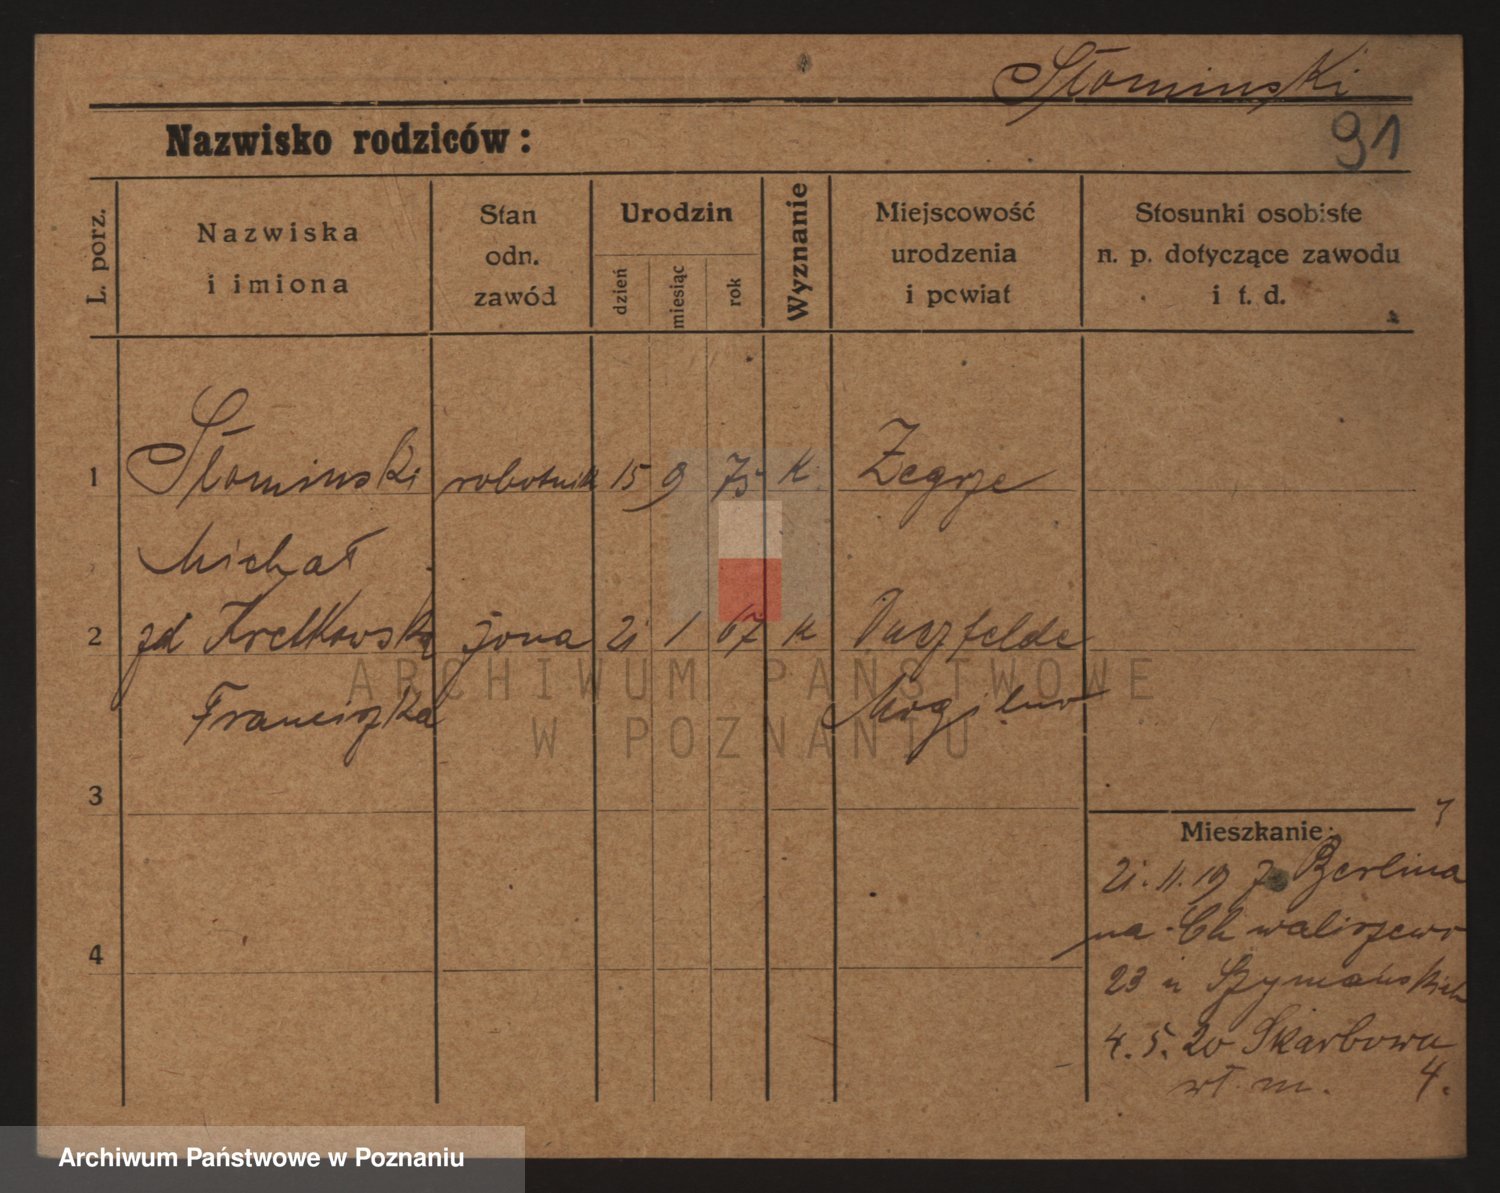 Słominski
91
Nazwisko rodziców:
L. porz.
Nazwiska
i imiona
Stan
odn.
zawód
Urodzin
dzień
miesiąc
rok
Wyznanie
Miejscowość
urodzenia
i powiat
Stosunki osobiste
n. p. dotyczące zawodu
i t. d.
1 Słominski robotnik 15 9 75 K. Zegrze
Michał
2 zd Kretkowska żona 21 1 67 K
Franciszka Mogilno
3
4
Mieszkanie:
21.11.19 z Berlina
na Chwaliszewo
23 u Szymańskich
4.5.20 Skarbowa
wł. m. 4.
ARCHIWUM PAŃSTWOWE
W POZNANIU
Archiwum Państwowe w Poznaniu